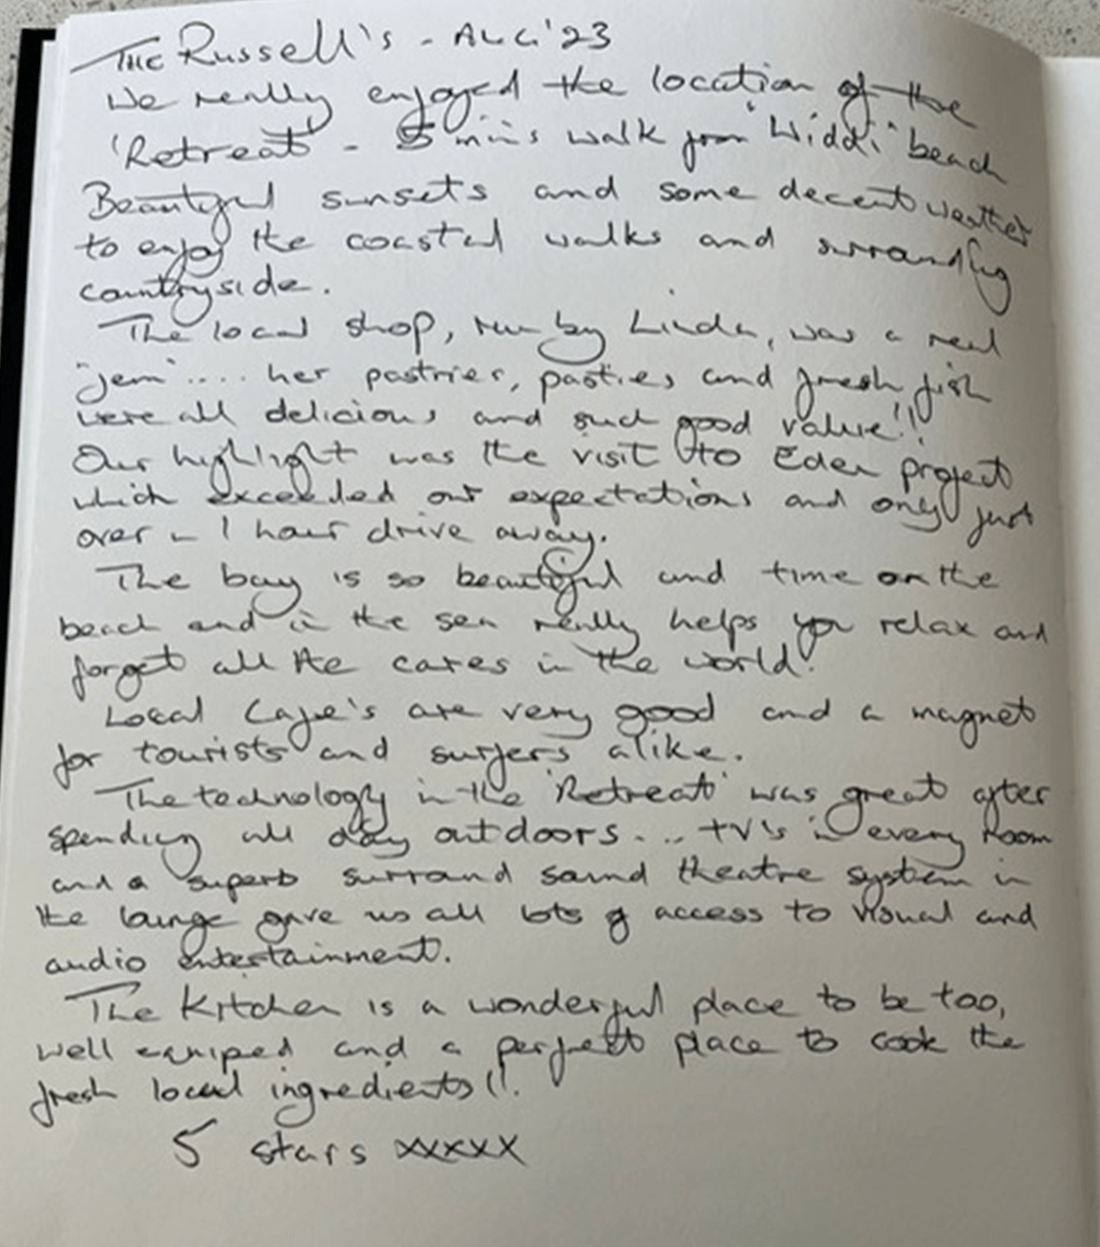 THE Russell's - AUG '23
We really enjoyed the location of the
'Retreat' - 5 mins walk from 'Widdi' beach
Beautiful sunsets and some decent weather
to enjoy the coastal walks and surrounding
countryside.
The local shop, run by Linda, was a real
'jem' .... her pastries, pasties and fresh fish
were all delicious and such good value!!
Our highlight was the visit to Eden project
which exceeded our expectations and only just
over - 1 hour drive away.
The bay is so beautiful and time on the
beach and in the sea really helps you relax and
forget all the cares in the world!
Local Cafe's are very good and a magnet
for tourists and surfers alike.
The technology in the 'Retreat' was great after
spending all day outdoors ... TV's in every room
and a superb surround sound theatre system in
the lounge gave us all lots of access to visual and
audio entertainment.
The Kitchen is a wonderful place to be too,
well equiped and a perfect place to cook the
fresh local ingredients!!
5 stars xxxxx